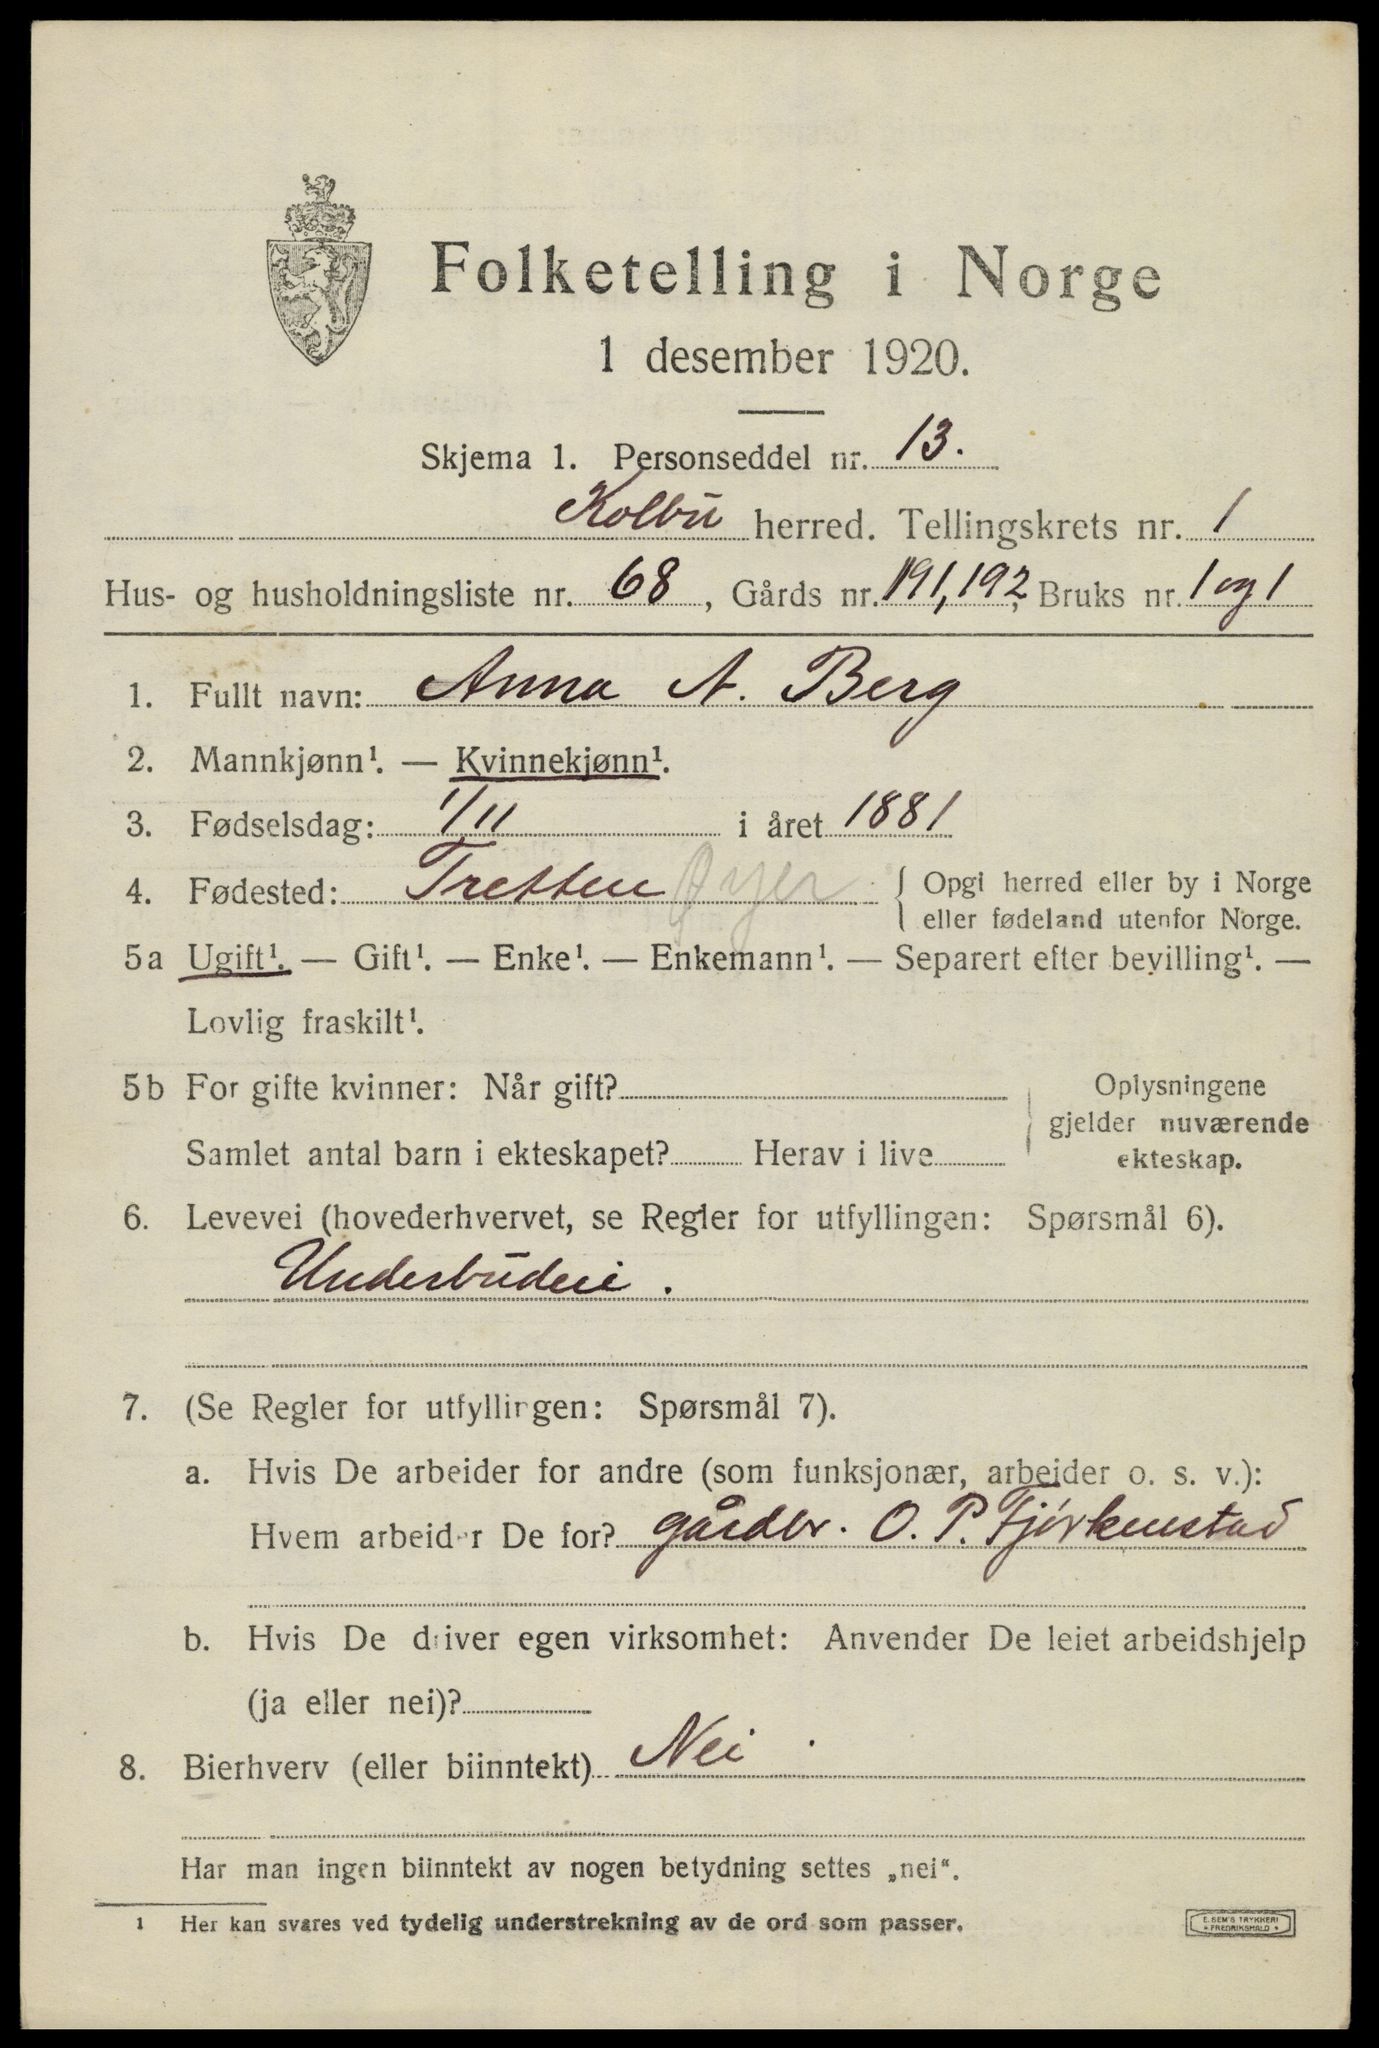 Folketelling i Norge
1 desember 1920.
Skjema 1. Personseddel nr. 13.
Kolbu herred. Tellingskrets nr. 1
Hus- og husholdningsliste nr. 68, Gårds nr. 191, 192, Bruks nr. 1 og 1
1. Fullt navn: Anna A. Berg
2. Mannkjønn¹. — Kvinnekjønn¹.
3. Fødselsdag: 1/11 i året 1881
4. Fødested: Tretten Øyer { Opgi herred eller by i Norge
eller fødeland utenfor Norge.
5a Ugift¹. — Gift¹. — Enke¹. — Enkemann¹. — Separert efter bevilling¹. —
Lovlig fraskilt¹.
5b For gifte kvinner: Når gift? Oplysningene
gjelder nuværende
Samlet antal barn i ekteskapet? Herav i live ekteskap.
6. Levevei (hovederhvervet, se Regler for utfyllingen: Spørsmål 6).
Underbudeie.
7. (Se Regler for utfyllingen: Spørsmål 7).
a. Hvis De arbeider for andre (som funksjonær, arbeider o. s. v.):
Hvem arbeider De for? gårdbr. O. P. Fjørkenstad
b. Hvis De driver egen virksomhet: Anvender De leiet arbeidshjelp
(ja eller nei)?
8. Bierhverv (eller biinntekt) Nei.
Har man ingen biinntekt av nogen betydning settes „nei“.
¹ Her kan svares ved tydelig understrekning av de ord som passer.
E. SEM'S TRYKKERI
FREDRIKSHALD